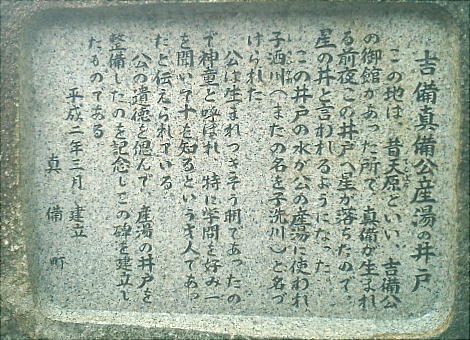 吉備真備公産湯の井戸
この地は、昔天原といい、吉備公
の御館があった所で、真備が生まれ
る前夜この井戸へ星が落ちたので、
星の井と言われるようになった。
この井戸の水が公の産湯に使われ
子洒川(またの名を子洗川)と名づ
けられた
公は生まれつきそう明であったの
で神童と呼ばれ、特に学問を好み一
を聞いて十を知るという才人であっ
たと伝えられている
公の遺徳を偲んで、産湯の井戸を
整備したのを記念しこの碑を建立し
たものである
平成二年三月 建立
真備町